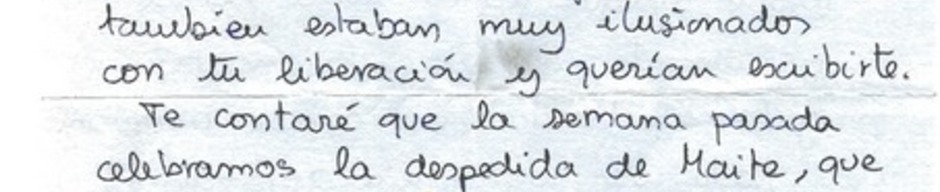 tambien estaban muy ilusionados
con tu liberación y querían escribirte.
Te contaré que la semana pasada
celebramos la despedida de Maite, que